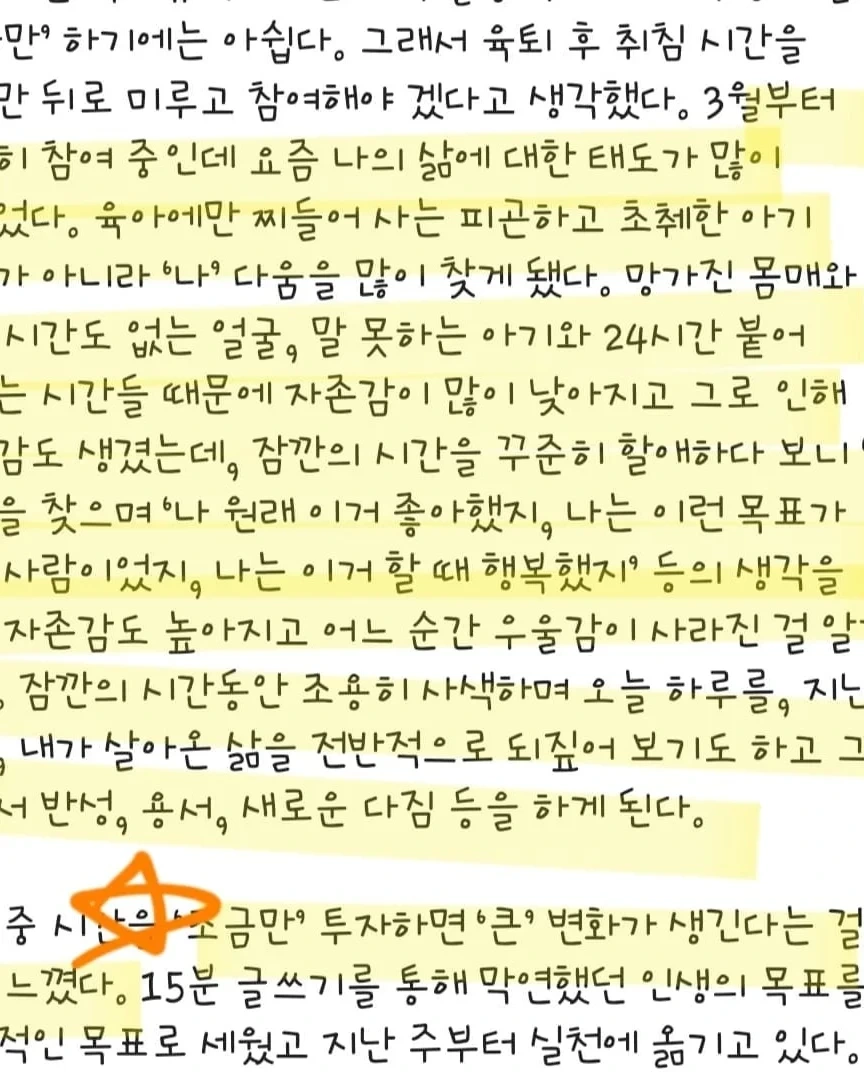 만' 하기에는 아쉽다. 그래서 육퇴 후 취침 시간을
만 뒤로 미루고 참여해야 겠다고 생각했다. 3월부터
히 참여 중인데 요즘 나의 삶에 대한 태도가 많이
었다. 육아에만 찌들어 사는 피곤하고 초췌한 아기
가 아니라 '나' 다움을 많이 찾게 됐다. 망가진 몸매와
시간도 없는 얼굴, 말 못하는 아기와 24시간 붙어
는 시간들 때문에 자존감이 많이 낮아지고 그로 인해
감도 생겼는데, 잠깐의 시간을 꾸준히 할애하다 보니 '
을 찾으며 '나 원래 이거 좋아했지, 나는 이런 목표가
사람이었지, 나는 이거 할 때 행복했지' 등의 생각을
자존감도 높아지고 어느 순간 우울감이 사라진 걸 알
, 잠깐의 시간동안 조용히 사색하며 오늘 하루를, 지난
, 내가 살아온 삶을 전반적으로 되짚어 보기도 하고 그
서 반성, 용서, 새로운 다짐 등을 하게 된다.
중 시간을 '조금만' 투자하면 '큰' 변화가 생긴다는 걸
느꼈다. 15분 글쓰기를 통해 막연했던 인생의 목표를
적인 목표로 세웠고 지난 주부터 실천에 옮기고 있다.